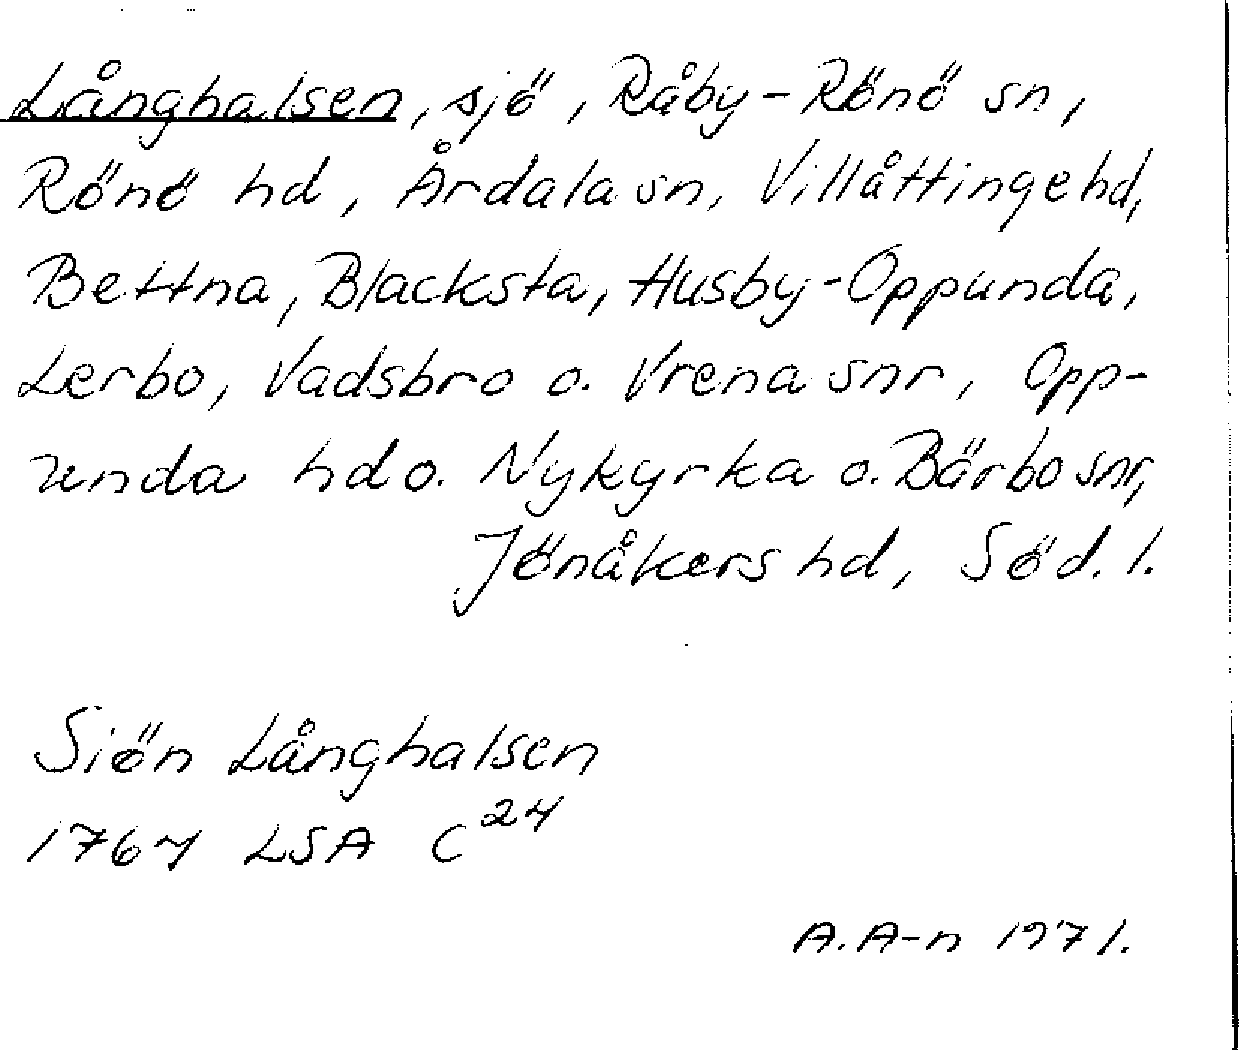 Långhalsen, sjö, Råby-Rönö sn,
Rönö hd, Årdala sn, Villåttinge hd,
Bettna, Blacksta, Husby-Oppunda,
Lerbo, Vadsbro o. Vrena snr, Opp-
unda hd o. Nykyrka o. Bärbo snr,
Jönåkers hd, Söd. l.
Siön Långhalsen
1764 LSA C 24
A. A-n 1971.